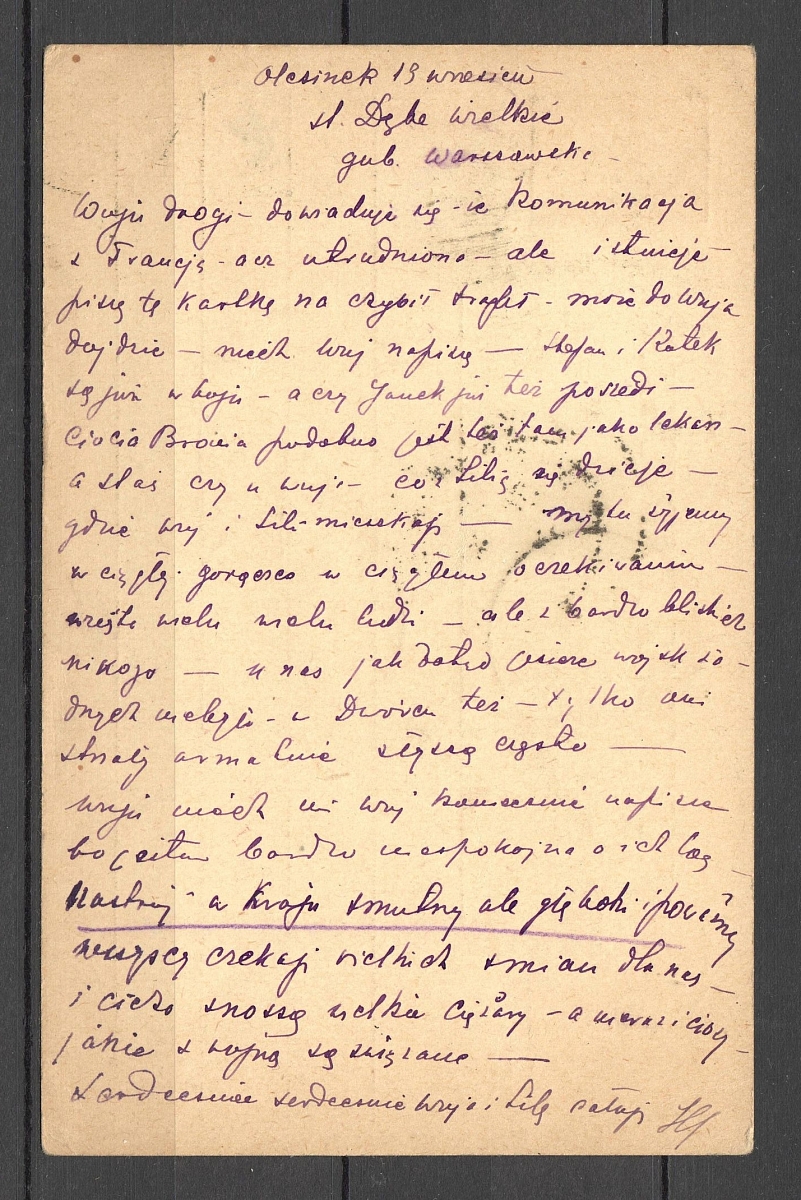 Olesinek 19 wrzesień
st. Dębe wielkie
gub. Warszawska
Wuju drogi - dowiaduję się - że komunikacja
z Francją - acz utrudniona - ale istnieje
piszę tę kartkę na czybił trafił - może do wuja
dojdzie - niech wuj napiszę - Stefan i Kotek
są już w boju - a czy Janek już też poszedł -
Ciocia Bronia podobno jest też tam jako lekarz -
a Staś czy u wuja - co z Lilią się dzieje -
gdzie wuj i Lili mieszkają - my tu żyjemy
w ciągłej gorączce w ciągłem oczekiwaniu -
wielu wielu ludzi - ale z bardzo bliskich
nikogo - u nas jak dotąd jeszcze wojsk ża-
dnych nie było - w Dworcu też - tylko oni
strzały armatnie słyszą często -
wuju niech mi wuj koniecznie napisze
bo jestem bardzo niespokojna o ich los -
Nastrój w Kraju smutny ale głęboki i poważny
wszyscy czekają wielkich zmian dla nas -
i cicho znoszą wielkie ciężary - a
jakie z wojną są związane -
Serdecznie serdecznie wuja i Lilę całuję